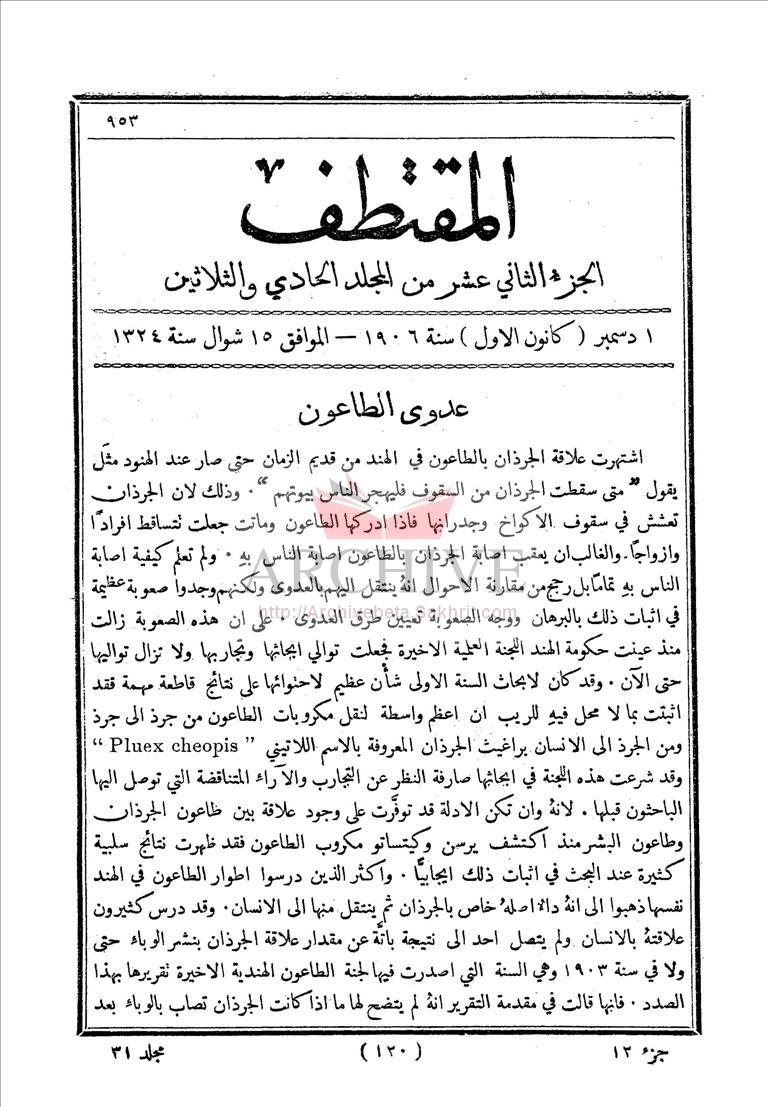 ٩٥٣
المقتطف
الجزء الثاني عشر من المجلد الحادي والثلاثين
١ دسمبر ( كانون الاول ) سنة ١٩٠٦ — الموافق ١٥ شوال سنة ١٣٢٤
عدوى الطاعون
اشتهرت علاقة الجرذان بالطاعون في الهند من قديم الزمان حتى صار عند الهنود مثل
يقول " متى سقطت الجرذان من السقوف فليهجر الناس بيوتهم " . وذلك لان الجرذان
تعشش في سقوف الاكواخ وجدرانها فاذا ادركها الطاعون وماتت جعلت تتساقط افراداً
وازواجاً. والغالب ان يعقب اصابة الجرذان بالطاعون اصابة الناس بهِ . ولم تعلم كيفية اصابة
الناس بهِ تماماً بل رجح من مقارنة الاحوال انهُ ينتقل اليهم بالعدوى ولكنهم وجدوا صعوبة عظيمة
في اثبات ذلك بالبرهان ووجه الصعوبة تعيين طرق العدوى . على ان هذه الصعوبة زالت
منذ عينت حكومة الهند اللجنة العملية الاخيرة فجعلت توالي ابحاثها وتجاربها ولا تزال تواليها
حتى الآن . وقد كان لابحاث السنة الاولى شأن عظيم لاحتوائها على نتائج قاطعة مهمة فقد
اثبتت بما لا محل فيهِ للريب ان اعظم واسطة لنقل مكروبات الطاعون من جرذ الى جرذ
ومن الجرذ الى الانسان براغيث الجرذان المعروفة بالاسم اللاتيني " Pluex cheopis "
وقد شرعت هذه اللجنة في ابحاثها صارفة النظر عن التجارب والآراء المتناقضة التي توصل اليها
الباحثون قبلها . لانهُ وان تكن الادلة قد توفَّرت على وجود علاقة بين طاعون الجرذان
وطاعون البشر منذ اكتشف يرسن وكيتساتو مكروب الطاعون فقد ظهرت نتائج سلبية
كثيرة عند البحث في اثبات ذلك ايجابيًّا . واكثر الذين درسوا اطوار الطاعون في الهند
نفسها ذهبوا الى انهُ دالا اصلهُ خاص بالجرذان ثم ينتقل منها الى الانسان . وقد درس كثيرون
علاقتهُ بالانسان ولم يتصل احد الى نتيجة باتَّة عن مقدار علاقة الجرذان بنشر الوباء حتى
ولا في سنة ١٩٠٣ وهي السنة التي اصدرت فيها لجنة الطاعون الهندية الاخيرة تقريرها بهذا
الصدد . فانها قالت في مقدمة التقرير انهُ لم يتضح لها ما اذا كانت الجرذان تصاب بالوباء بعد
جزء ١٢
( ١٢٠ )
مجلد ٣١
ARCHIVE
http://Archivebeta.Sakhrit.com